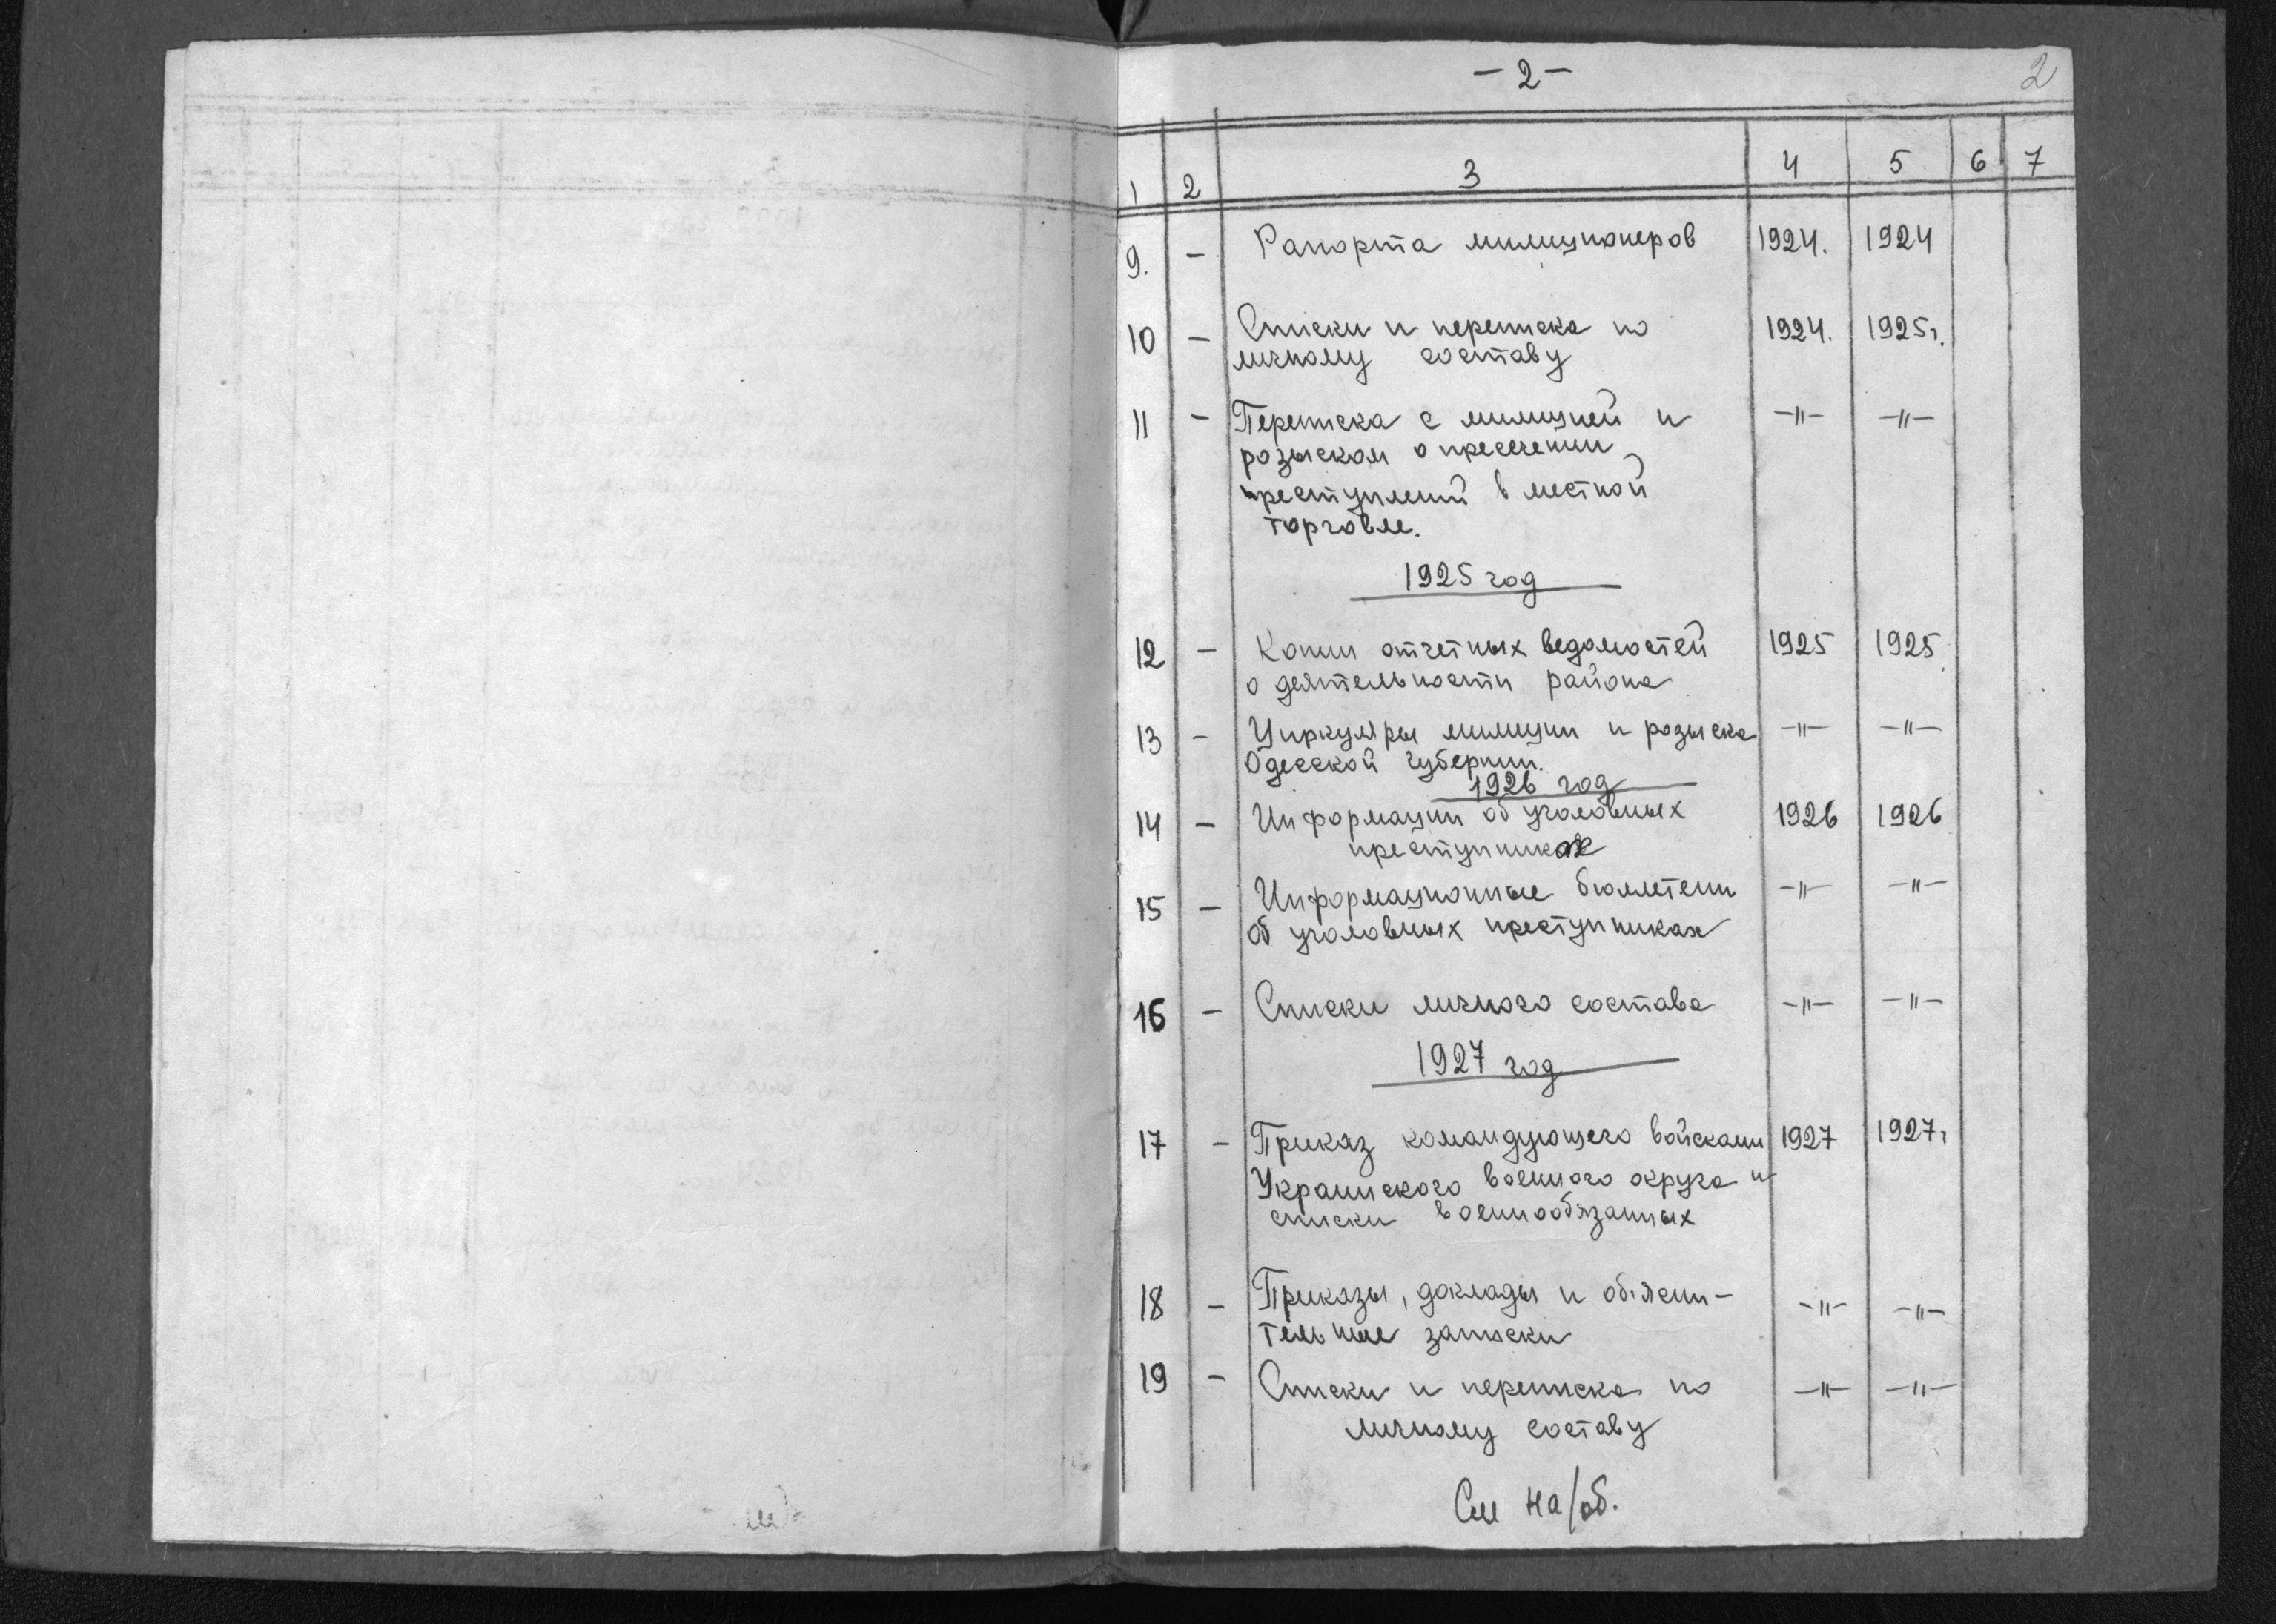 - 2 -
2
1 2 3 4 5 6 7
9. - Рапорта милиционеров 1924. 1924
10 - Списки и переписка по 1924. 1925г.
личному составу
11 - Переписка с милицией и -"- -"-
розыском о пресечении
преступлений в местной
торговле.
1925 год
12 - Копии отчетных ведомостей 1925 1925
о деятельности района
13 - Циркуляры милиции и розыска -"- -"-
Одесской губернии.
1926 год
14 - Информации об уголовных 1926 1926
преступниках
15 - Информационные бюллетени -"- -"-
об уголовных преступниках
16 - Списки личного состава -"- -"-
1927 год
17 - Приказ командующего войсками 1927 1927г
Украинского военного округа и
списки военнообязанных
18 - Приказы, доклады и об'ясни- -"- -"-
тельные записки
19 - Списки и переписка по -"- -"-
личному составу
См на/об.